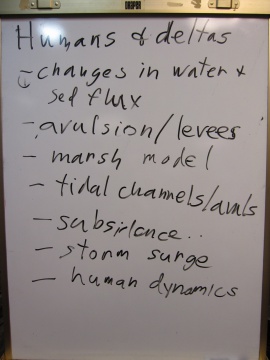 Humans & deltas
- changes in water &
sed flux
- avulsion/levees
- marsh model
- tidal channels/avuls
- subsidence..
- storm surge
- human dynamics